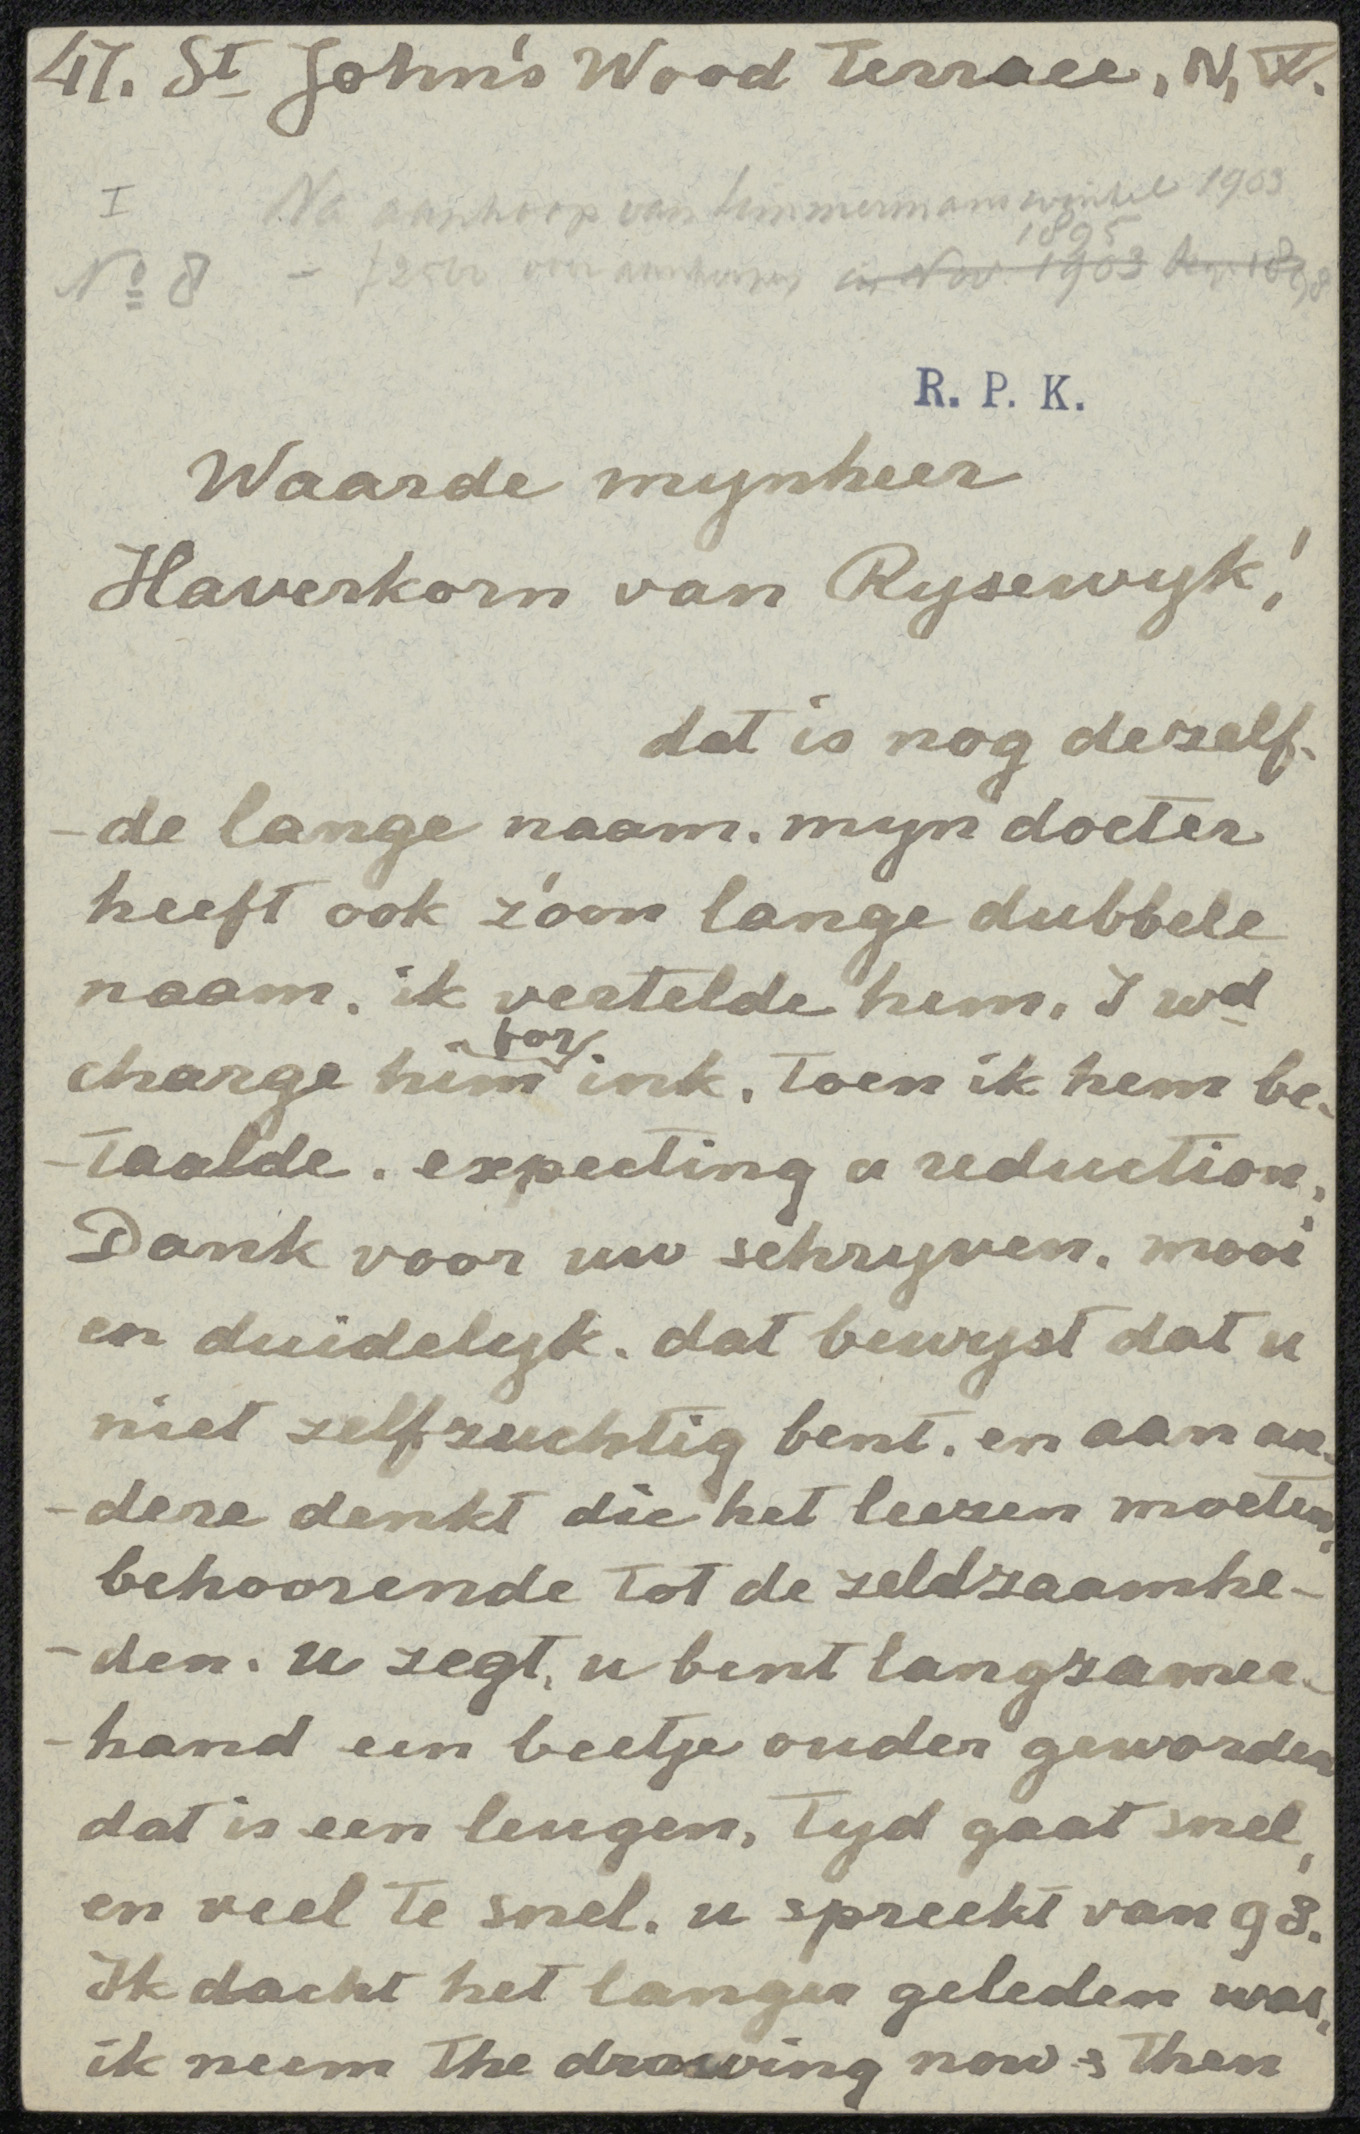 47. St John's Wood Terrace, N, W.
I Na aankoop van timmermanswinkel 1903
1895
No 8 - f2500 voor aankoopen in Nov 1903
R. P. K.
Waarde mynheer
Haverkorn van Rysewyk!
dat is nog dezelf-
-de lange naam. myn docter
heeft ook z'oon lange dubbele
naam. ik vertelde hem, I wd
for
charge him ink. toen ik hem be-
-taalde. expecting a reduction,
Dank voor uw schryven. mooi
en duidelyk. dat bewyst dat u
niet zelfzuchtig bent. en aan an-
-dere denkt die het leezen moeten,
behoorende tot de zeldzaamhe-
-den. U zegt, u bent langzamer-
-hand een beetje ouder geworden
dat is een leugen, tyd gaat snel,
en veel te snel. u spreekt van 93.
Ik dacht het langer geleden was,
ik neem the drawing now & then